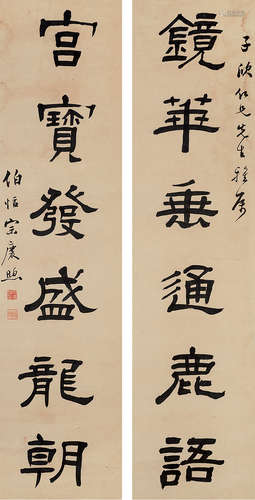 子欣仁兄先生雅屬
鏡華乘通鹿語
宫寶發盛龍朝
伯恬宗慶煦